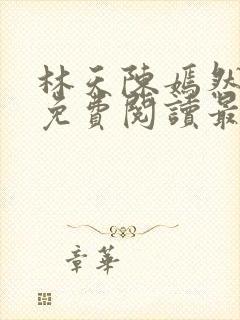 林天陳嫣然
免費閱讀最
章華